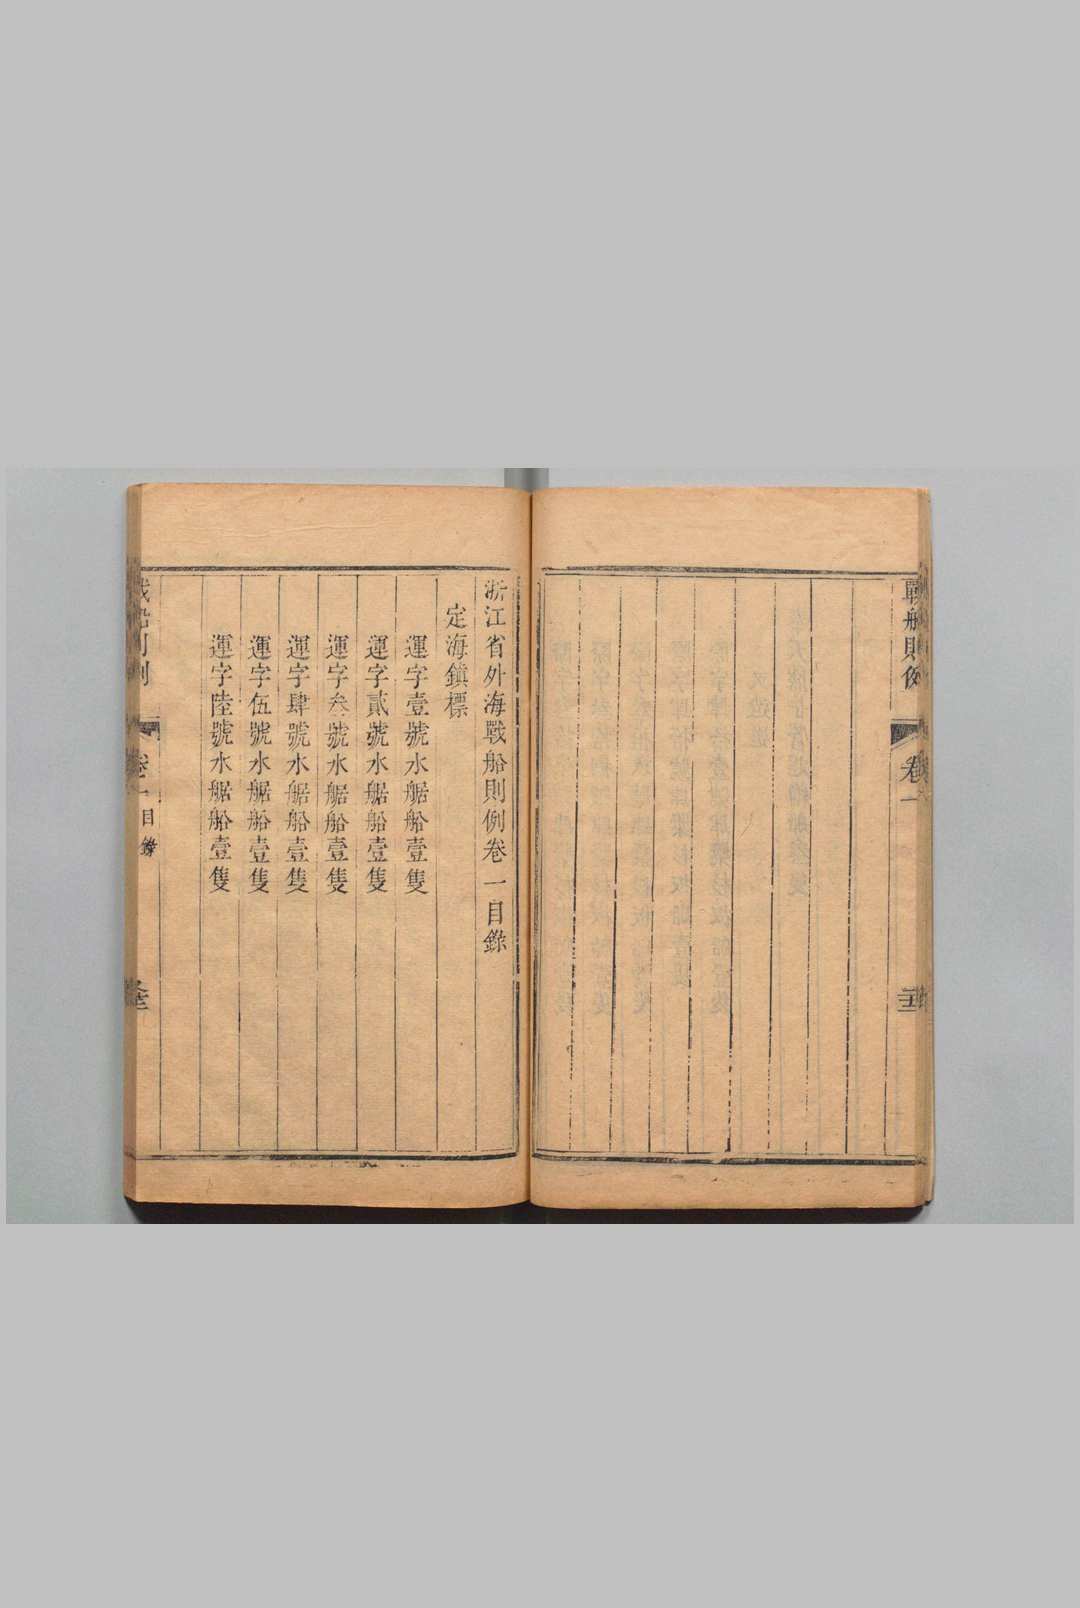 戰船則例
卷一
浙江省外海戰船則例卷一目錄
定海鎮標
運字壹號水艍船壹隻
運字貳號水艍船壹隻
運字叁號水艍船壹隻
運字肆號水艍船壹隻
運字伍號水艍船壹隻
運字陸號水艍船壹隻
戰船則例
卷一目錄